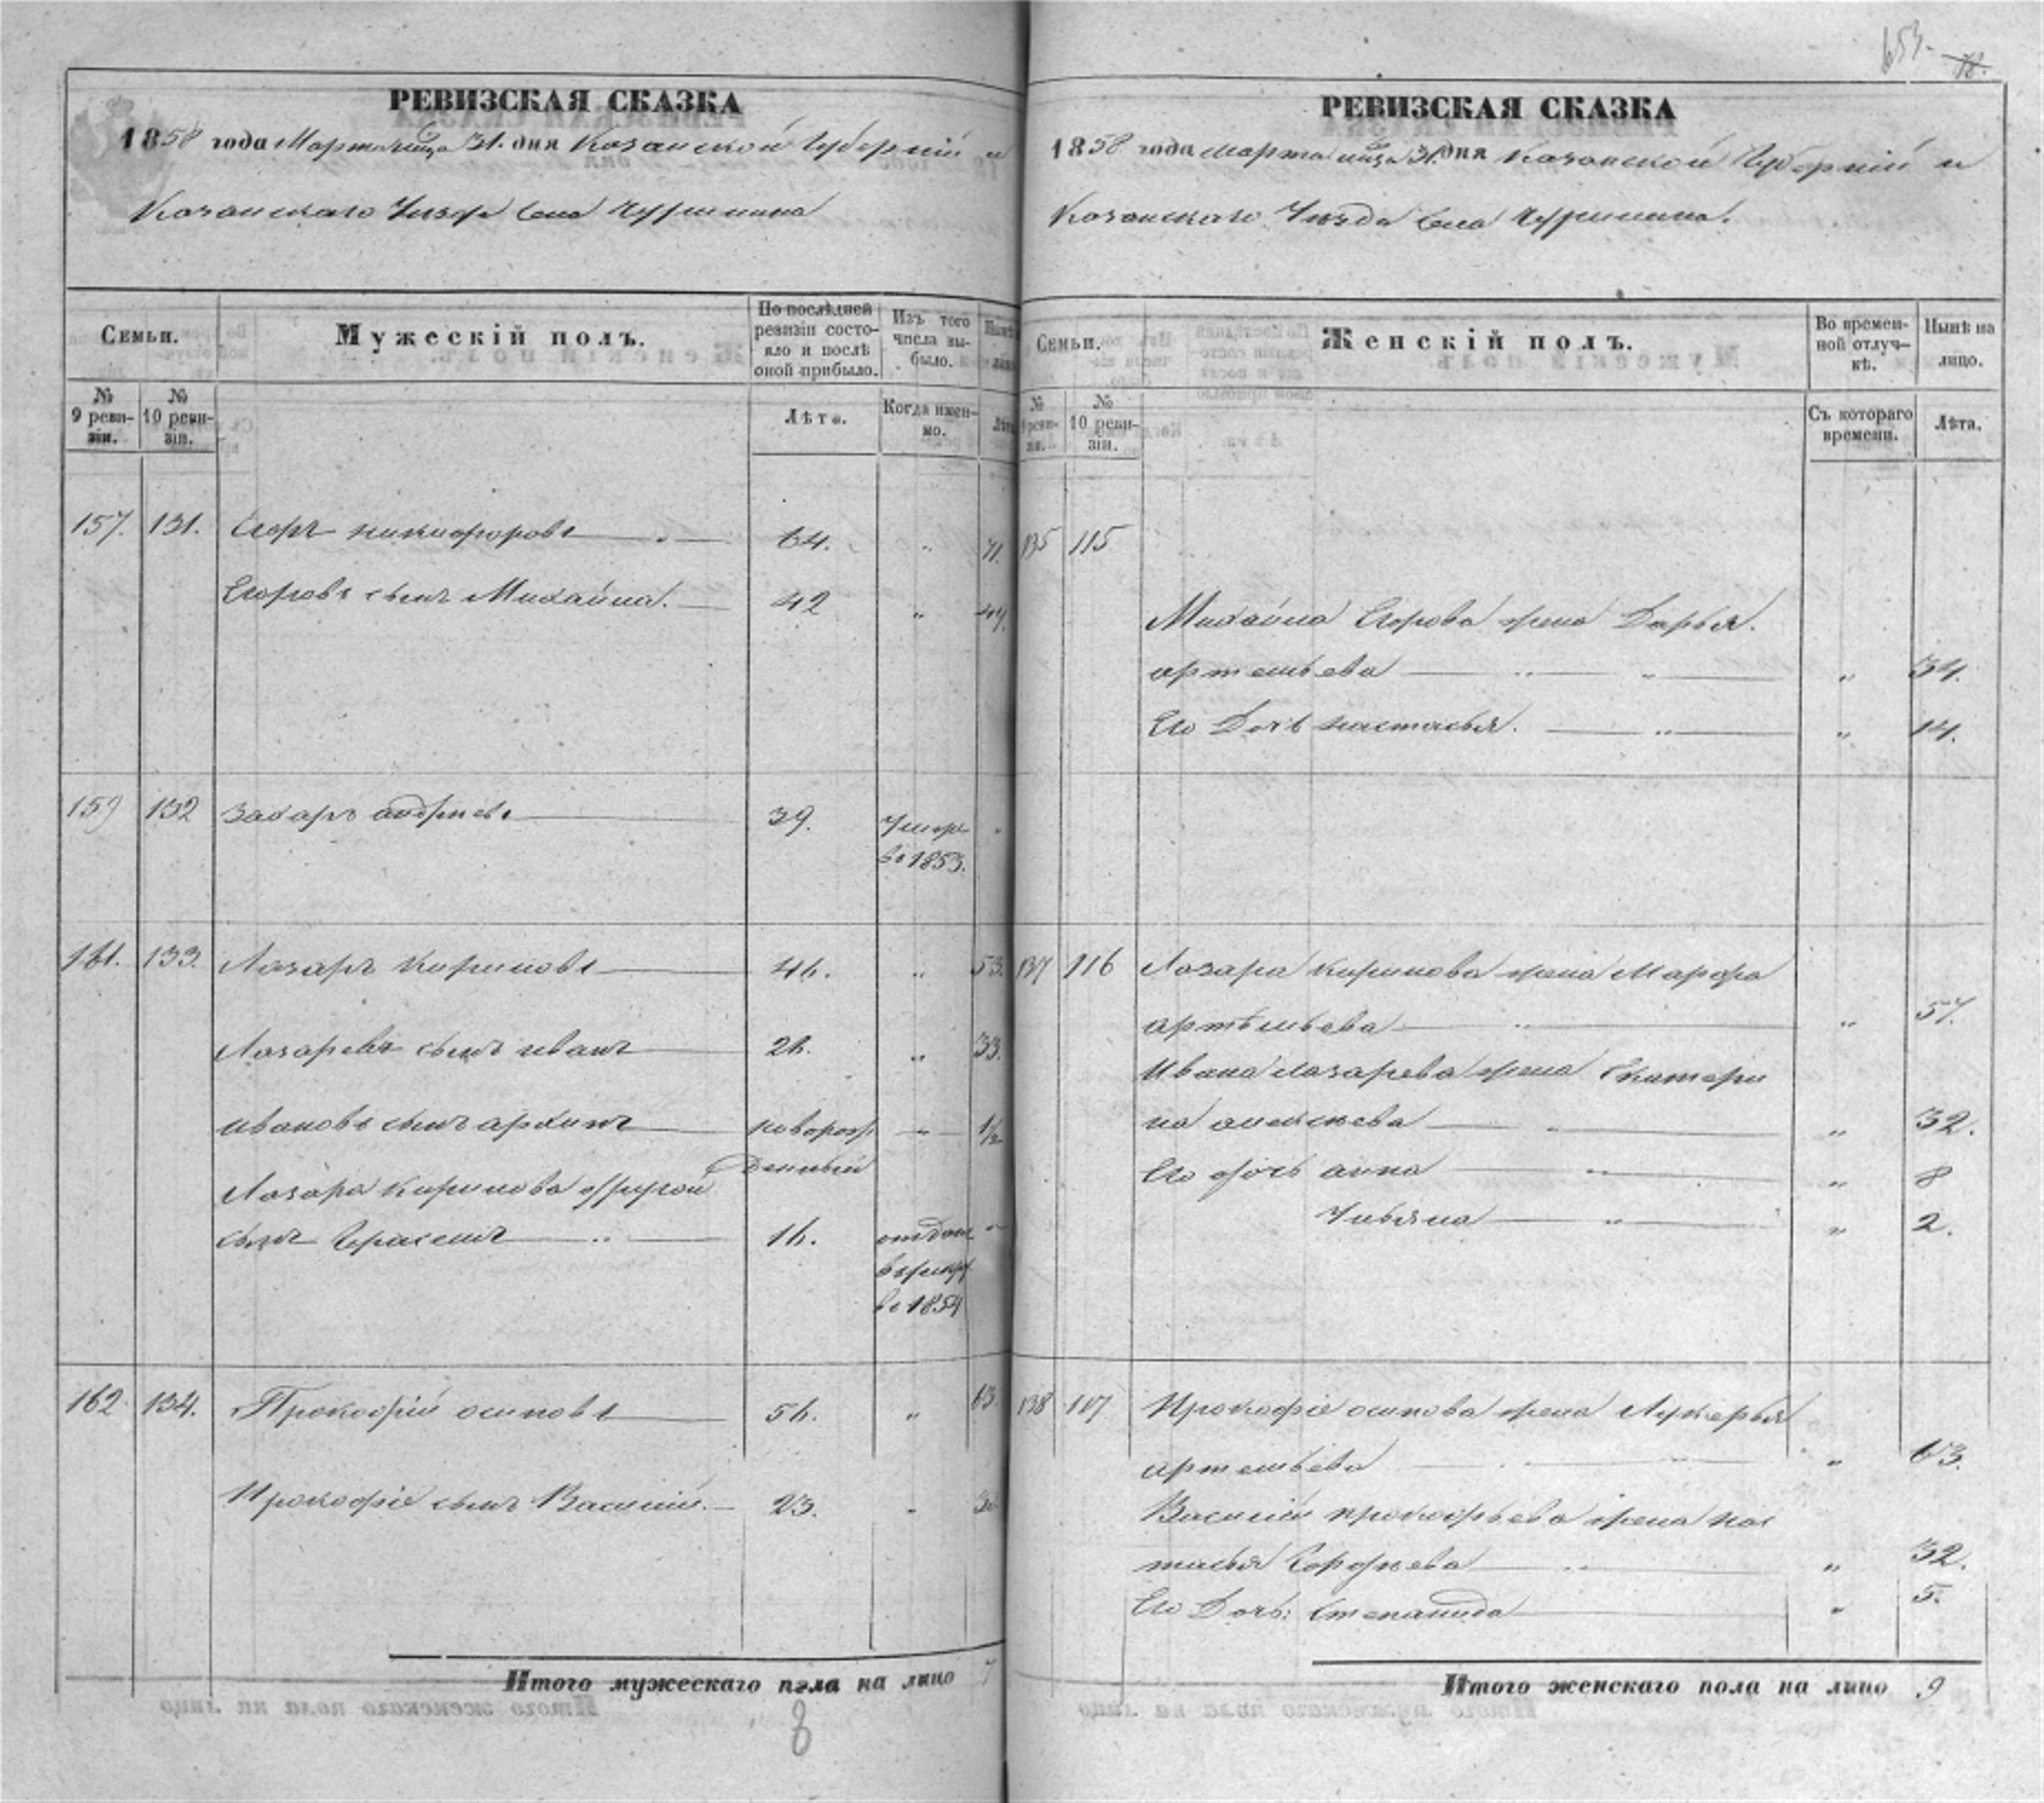 653.
18.
РЕВИЗСКАЯ СКАЗКА
1858 года Марта мца 31. дня Казанской Губерніи и
Казанскаго Уезда Села
Семьи.
Мужескій полъ.
По послѣдней ревизіи состояло и послѣ оной прибыло.
Изъ того числа выбыло.
№ 9 ревизіи.
№ 10 ревизіи.
Лѣта.
Когда именно.
157. 131. Егоръ никифоровъ 64. „ 71.
Егоровъ сынъ Михайла. 42 „ 49.
159 132 Захаръ андреевъ 39. Умре
во 1853.
161. 133. Лазарь Кириловъ 46. „ 53.
Лазаревъ сынъ иванъ 26. „ 33.
ивановъ сынъ архипъ новорож „ 1/2
денный
Лазаря Кирилова другой
сынъ Герасимъ 16. отдан „
в рекру
во 1854
162 134. Прокофій осиповъ 56. „ 63.
Прокофіе сынъ Василій. 23. „
Итого мужескаго пола на лицо 7
8
РЕВИЗСКАЯ СКАЗКА
1858 года марта мца 31. дня Казанской Губерніи и
Казанскаго Уезда Села
Семьи.
Женскій полъ.
Во временной отлучкѣ.
Нынѣ на лицо.
№ 10 ревизіи.
Съ котораго времени.
Лѣта.
135 115
Михайла Егорова жена Дарья.
артемьева „ 34.
Его Дочь настасья. „ 14.
137 116 Лазаря кирилова жена Марфа
артемьева „ 57.
Ивана лазарева жена Екатери
на алексеева „ 32.
Его дочь анна „ 8
Ульяна „ 2.
138 117 Прокофіе осипова жена Лукерья
артемьева „ 63.
Василіи прокофьева жена нас
тасья „ 32.
Его Дочь: Степанида „ 5.
Итого женскаго пола на лицо 9